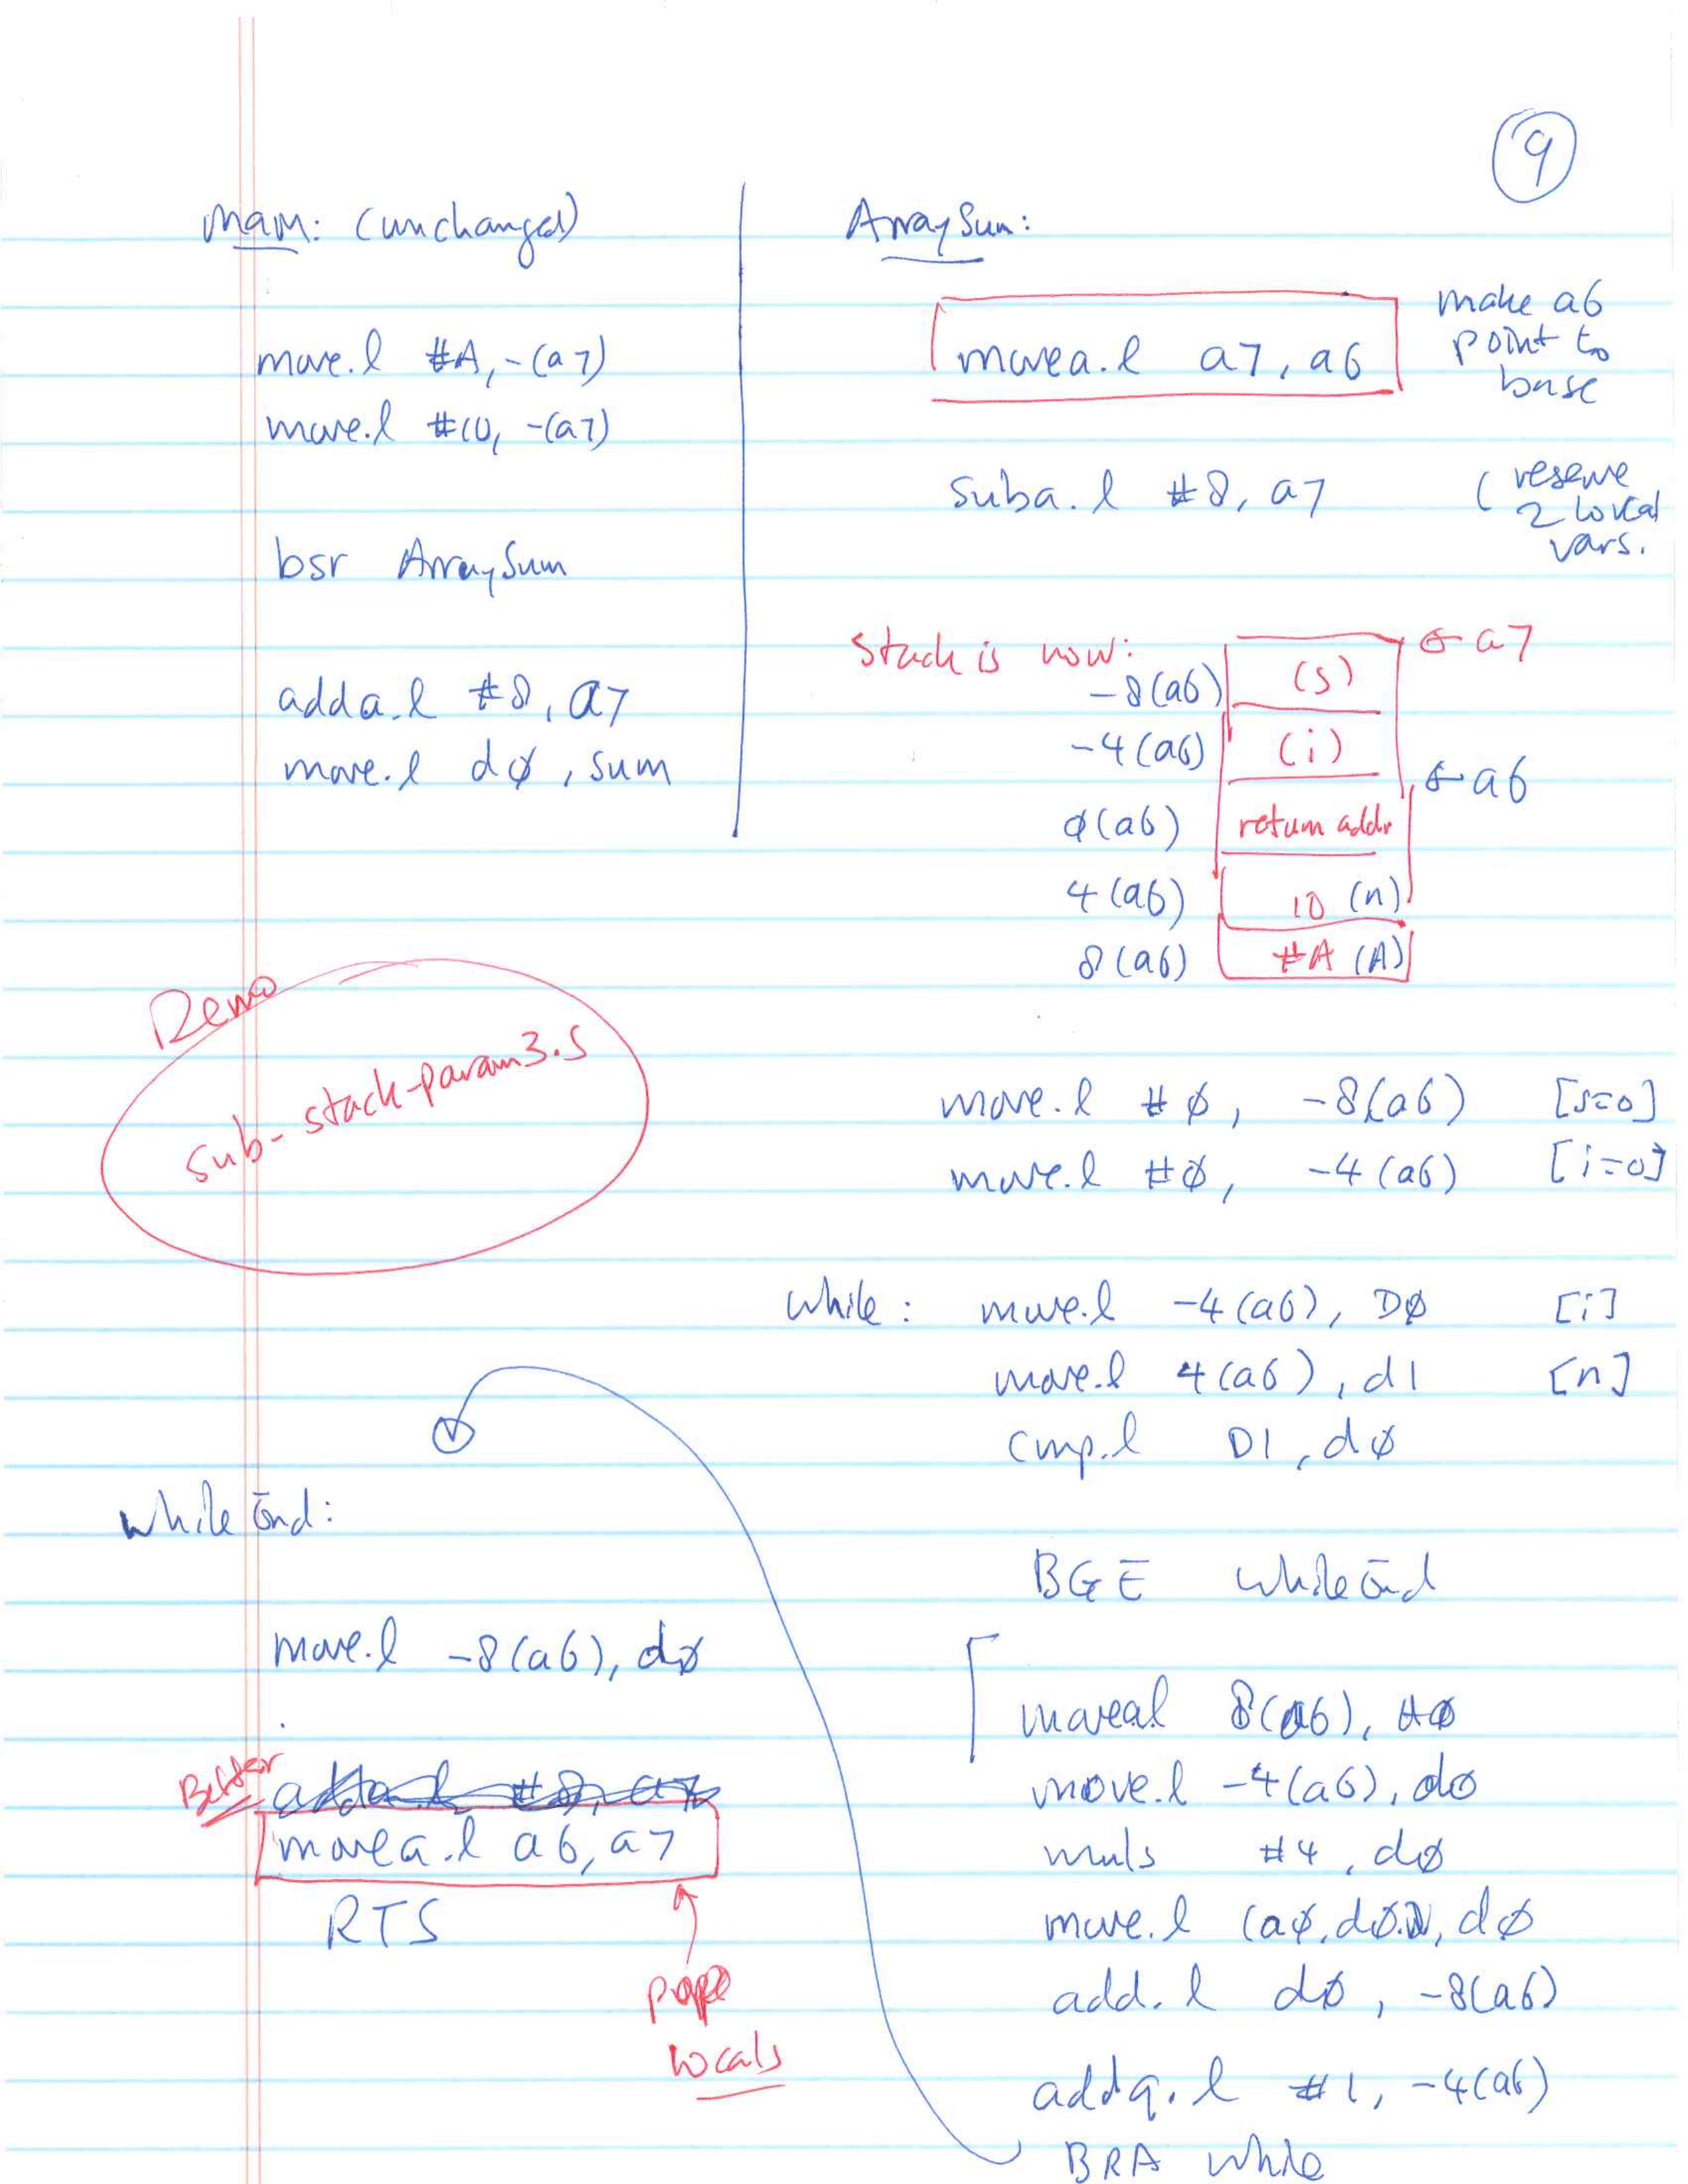 9
main: (unchanged)
move.l #A, -(a7)
move.l #10, -(a7)
bsr ArraySum
adda.l #8, a7
move.l d0, sum
ArraySum:
movea.l a7, a6
make a6
point to
base
suba.l #8, a7
( reserve
2 local
vars.
Stack is now:
← a7
-8(a6) (s)
-4(a6) (i)
← a6
0(a6) return addr
4(a6) 10 (n)
8(a6) #A (A)
Demo
sub-stack-param3.s
move.l #0, -8(a6) [s=0]
move.l #0, -4(a6) [i=0]
while: move.l -4(a6), D0 [i]
move.l 4(a6), d1 [n]
cmp.l D1, d0
BGE whileEnd
moveal 8(a6), A0
move.l -4(a6), d0
muls #4, d0
move.l (a0,d0.), d0
add.l d0, -8(a6)
addq.l #1, -4(a6)
BRA while
whileEnd:
move.l -8(a6), d0
Better
adda.l #8, a7
movea.l a6, a7
RTS
pop
locals